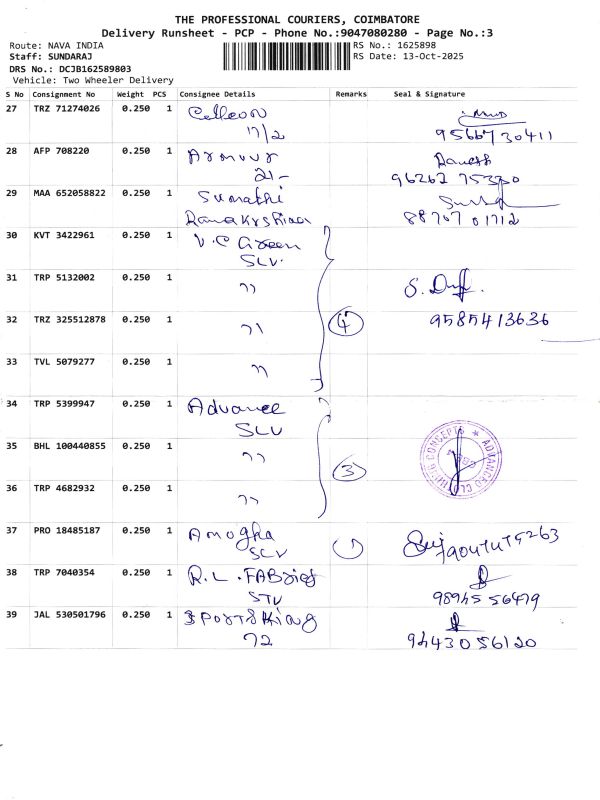 THE PROFESSIONAL COURIERS, COIMBATORE
Delivery Runsheet - PCP - Phone No.:9047080280 - Page No.:3
Route: NAVA INDIA RS No.: 1625898
Staff: SUNDARAJ RS Date: 13-Oct-2025
DRS No.: DCJB162589803
Vehicle: Two Wheeler Delivery
S No Consignment No Weight PCS Consignee Details Remarks Seal & Signature
27 TRZ 71274026 0.250 1
17/2 9566730411
28 AFP 708220 0.250 1 Armour Ramesh
21- 96262
29 MAA 652058822 0.250 1 Sumathi
Ramakrshinan 88707 01712
30 KVT 3422961 0.250 1 V.C Green
SLV.
31 TRP 5132002 0.250 1 ''
32 TRZ 325512878 0.250 1 '' 4 9585413636
33 TVL 5079277 0.250 1 ''
34 TRP 5399947 0.250 1 Advance
SLV
35 BHL 100440855 0.250 1 '' 3 ADVANCED
36 TRP 4682932 0.250 1 ''
37 PRO 18485187 0.250 1 Amogha 1
SLV
38 TRP 7040354 0.250 1 R.L.FABrief
STV 98945 56479
39 JAL 530501796 0.250 1 Sports King
72 94430 56120